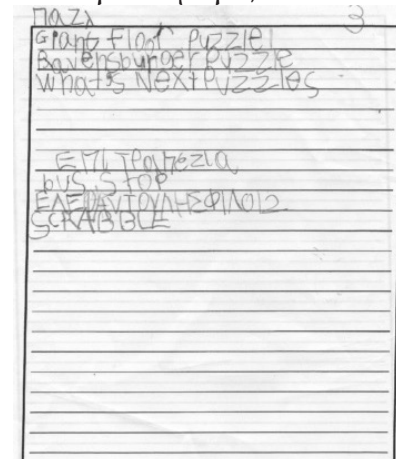 παζλ 3
Giant floor puzzle
Ravensburger puzzle
what's Next Puzzles
ΕΠΙΤραπέζια
bus STOP
ΕΛΕΦΑΝΤΟΥΛΗΣ ΦΙΛΟΙ2
SCRABBLE